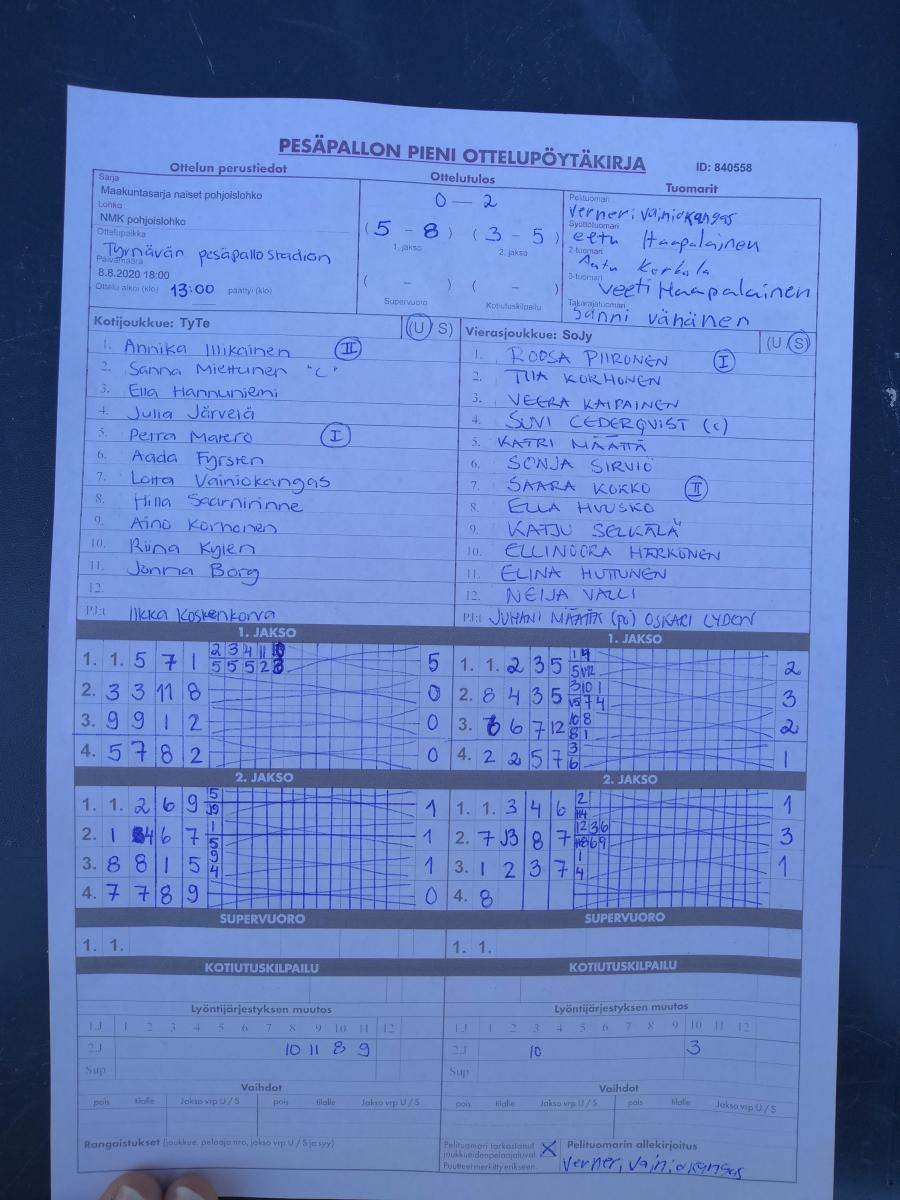 PESÄPALLON PIENI OTTELUPÖYTÄKIRJA
ID: 840558
Ottelun perustiedot
Ottelutulos
Tuomarit
Sarja
Maakuntasarja naiset pohjoislohko
Lohko
NMK pohjoislohko
Ottelupaikka
Tyrnävän pesäpallostadion
Päivämäärä
8.8.2020 18:00
Ottelu alkoi (klo) 13:00 päättyi (klo)
0 — 2
(5 - 8) (3 - 5)
1. jakso 2. jakso
( - ) ( - )
Supervuoro Kotiutuskilpailu
Pelituomari
Verneri Vainiokangas
Syöttötuomari
eetu Haapalainen
2-tuomari
Aatu Korkala
3-tuomari
Veeti Haapalainen
Takarajatuomari
Sanni Vähänen
Kotijoukkue: TyTe (U S)
1. Annika Illikainen II
2. Sanna Miettunen "C"
3. Ella Hannuniemi
4. Julia Järvelä
5. Petra Matero I
6. Aada Fyrsten
7. Lotta Vainiokangas
8. Hilla Saarnirinne
9. Aino Korhonen
10. Riina Kylen
11. Jonna Borg
12.
PJ:t Ilkka Koskenkorva
Vierasjoukkue: SoJy (U S)
1. ROOSA PIIRONEN I
2. TIIA KORHONEN
3. VEERA KAIPAINEN
4. SUVI CEDERQVIST (c)
5. KATRI MÄÄTTÄ
6. SONJA SIRVIÖ
7. SAARA KOKKO II
8. ELLA HUUSKO
9. KATJU SELKÄLÄ
10. ELLINOORA HÄRKÖNEN
11. ELINA HUTTUNEN
12. NEIJA VALLI
PJ:t JUHANI MÄÄTTÄ (pj) OSKARI LYDEN
1. JAKSO
1. 1. 5 7 1 5
2. 3 3 11 8 0
3. 9 9 1 2 0
4. 5 7 8 2 0
1. JAKSO
1. 1. 2 3 5 2
2. 8 4 3 5 3
3. 6 6 7 12 2
4. 2 2 5 7 1
2. JAKSO
1. 1. 2 6 9 1
2. 1 4 6 7 1
3. 8 8 1 5 1
4. 7 7 8 9 0
2. JAKSO
1. 1. 3 4 6 1
2. 7 J3 8 7 3
3. 1 2 3 7 1
4. 8
SUPERVUORO
1. 1.
SUPERVUORO
1. 1.
KOTIUTUSKILPAILU
KOTIUTUSKILPAILU
Lyöntijärjestyksen muutos
1.J 1 2 3 4 5 6 7 8 9 10 11 12
2.J 10 11 8 9
Sup
Lyöntijärjestyksen muutos
1.J 1 2 3 4 5 6 7 8 9 10 11 12
2.J 10 3
Sup
Vaihdot
pois tilalle Jakso vrp U / S pois tilalle Jakso vrp U / S
Vaihdot
pois tilalle Jakso vrp U / S pois tilalle Jakso vrp U / S
Rangaistukset (joukkue, pelaaja nro, jakso vrp U / S ja syy)
Pelituomari tarkastanut
joukkueiden pelaajaluvat. X
Puutteet merkitty erikseen.
Pelituomarin allekirjoitus
Verneri Vainiokangas